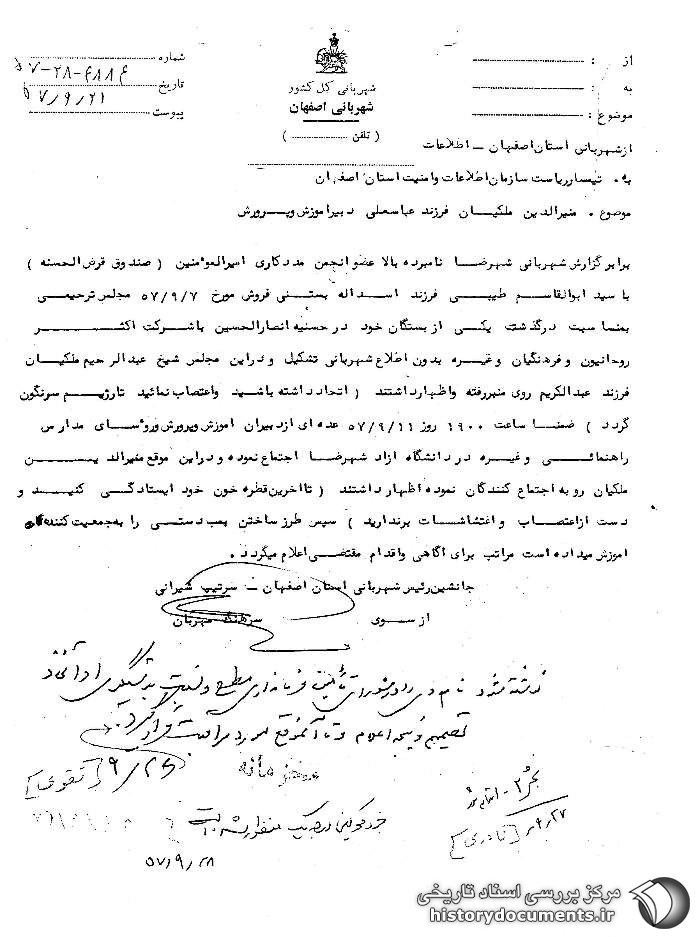 شماره ۵۷-۲۸-۶۸۸۶
تاریخ ۵۷/۹/۲۱
پیوست
شهربانی کل کشور
شهربانی اصفهان
( تلفن )
از :
به :
موضوع :
ازشهربانی استان اصفهان ـ اطلاعات
به ۰ تیمسارریاست سازمان اطلاعات وامنیت استان اصفهان
موضوع ۰ منیرالدین ملکیان فرزند عباسعلی دبیراموزش وپرورش
برابرگزارش شهربانی شهرضا نامبرده بالا عضوانجمن مددکاری امیرالموئمنین ( صندوق قرض الحسنه )
با سید ابوالقاسم طیبی فرزند اسداله بستنی فروش مورخ ۵۷/۹/۷ مجلس ترحیمی
بمناسبت درگذشت یکی ازبستگان خود درحسنیه انصارالحسین باشرکت اکثر
روحانیون وفرهنگیان وغیره بدون اطلاع شهربانی تشکیل ودراین مجلس شیخ عبدالرحیم ملکیان
فرزند عبدالکریم روی منبررفته واظهارداشتند ( اتحادداشته باشید واعتصاب نمائید تارژیم سرنگون
گردد ) ضمنا ساعت ۱۹۰۰ روز ۵۷/۹/۱۱ عده ای ازدبیران اموزش وپرورش وروئسای مدارس
راهنمائی وغیره دردانشگاه ازاد شهرضا اجتماع نموده ودراین موقع منیرالدین
ملکیان روبه اجتماع کنندگان نموده اظهارداشتند ( تااخرین قطره خون خود ایستادگی کنید و
دست ازاعتصاب واغتشاشات برندارید ) سپس طرزساختن بمب دستی را به جمعیت کننده گان
اموزش میداده است مراتب برای اگاهی واقدام مقتضی اعلام میگردد ۰
جانشین رئیس شهربانی استان اصفهان ـ سرتیپ شیرانی
ازسوی سرهنگ مهربان
نوشته شود نامه‌ی در شورای تأمین فرمانداری مطرح و نسبت به دستگیری او اتخاذ
تصمیم و نتیجه اعلام و تا آنموقع مورد مراقبت قرار گیرد.
۹/۲۵ [تقوی]
محرمانه
بخش ۳ -
۹/۲۷ [نادری]
۵۷/۹/۲۸
مرکز بررسی اسناد تاریخی
historydocuments.ir